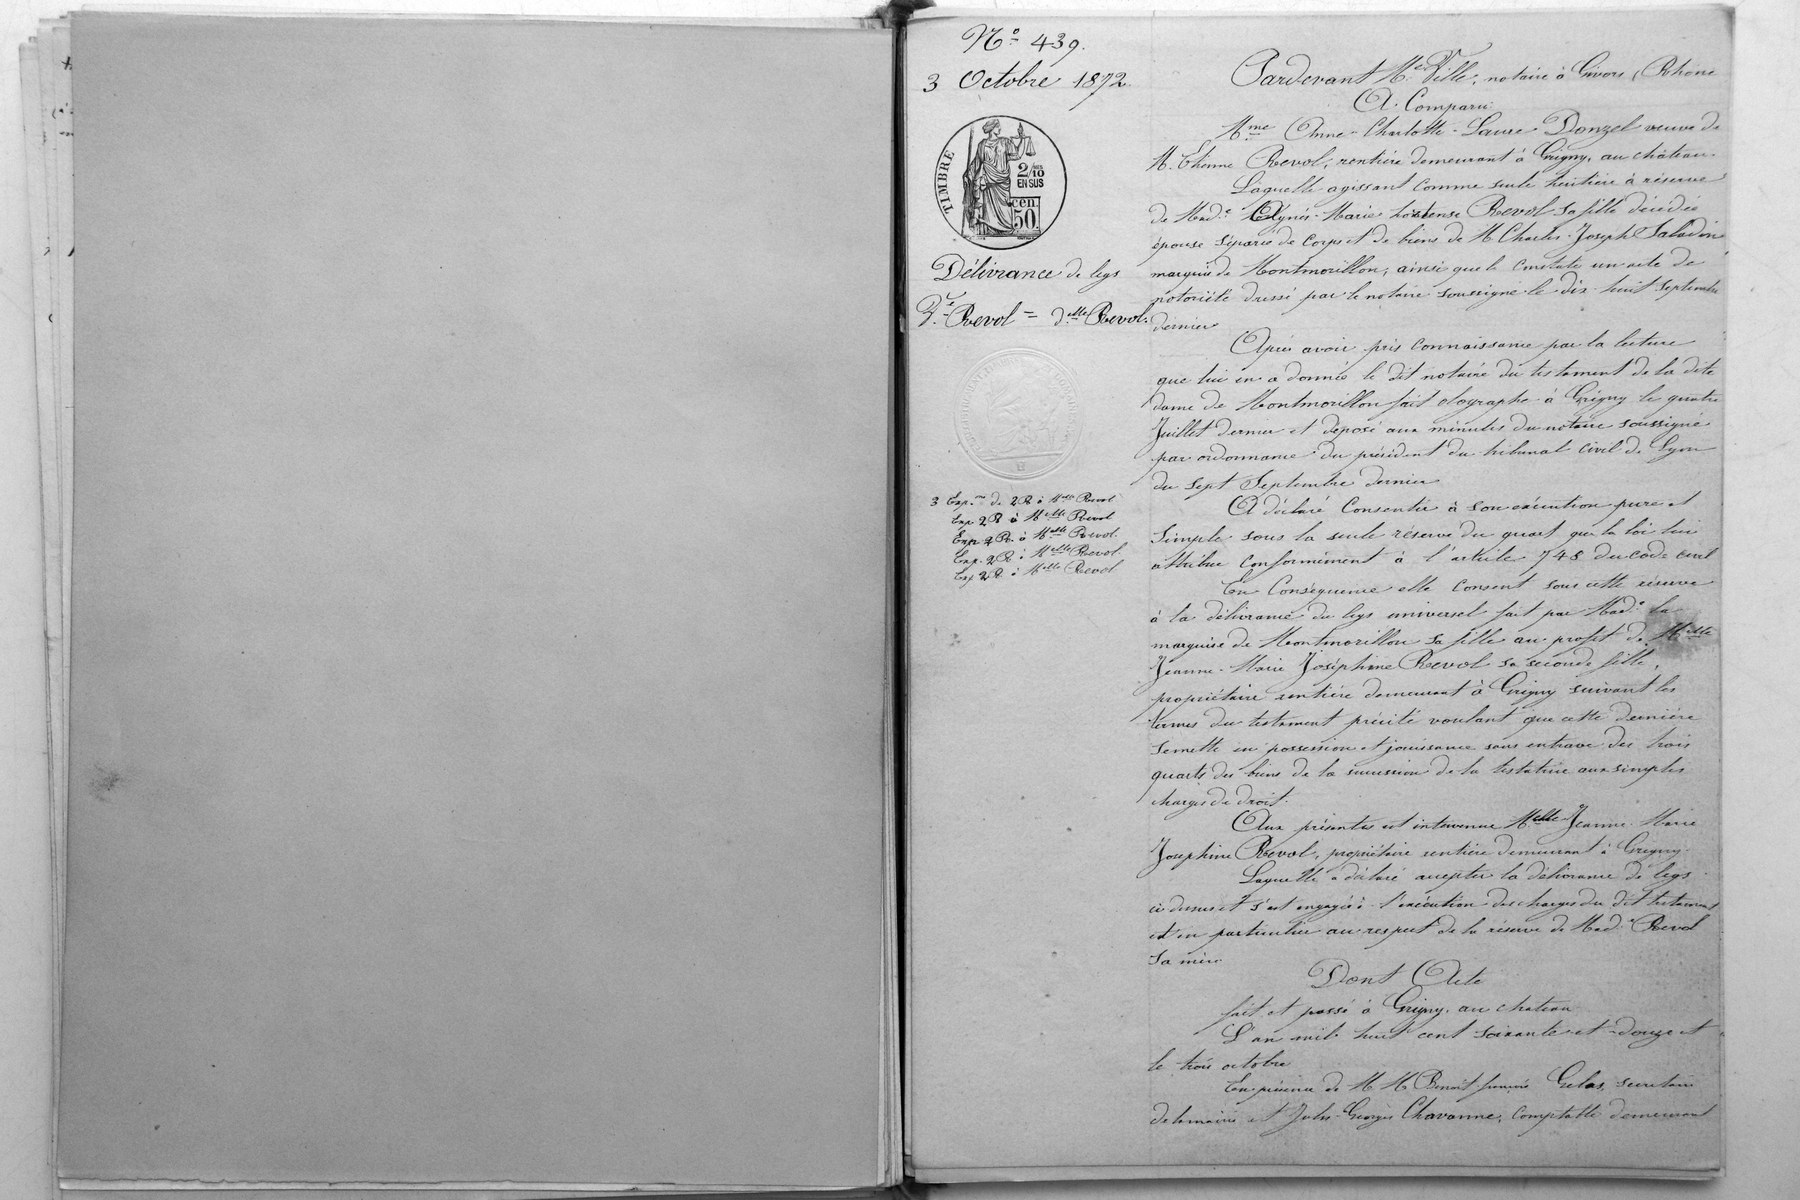 N° 439.
3 Octobre 1872.
TIMBRE
2/10
EN SUS
cen.
50.
Délivrance de legs
De Revol = delle Revol.
3 Exp.on de 2R à Melle Revol
Exp 2R à Melle Revol
Exp 2R à Melle Revol.
Exp. 2R à Melle Revol.
Exp 2R à Melle Revol
Pardevant Me Ville, notaire à Givors, (Rhône
A Comparu:
Mme Anne-Charlotte-Laure Donzel veuve de
M. Etienne Revol, rentière demeurant à Grigny, au château.
Laquelle agissant comme seule héritière à réserve
de Made Agnès-Marie hortense Revol sa fille décédée
épouse séparée de corps et de biens de M Charles-Joseph Saladin
marquis de Montmorillon, ainsi que le constate un acte de
notoriété dressé par le notaire soussigné le dix huit Septembre
dernier
Après avoir pris connaissance par la lecture
que lui en a donnée le dit notaire du testament de la dite
dame de Montmorillon fait olographe à Grigny le quatre
Juillet dernier et déposé aux minutes du notaire soussigné
par ordonnance du président du tribunal civil de Lyon
du sept Septembre dernier
A déclaré Consentir à son exécution pure et
simple sous la seule réserve du quart que la loi lui
attribue conformément à l'article 748 du code civil
En Conséquence elle consent sous cette réserve
à la délivrance du legs universel fait par Made la
marquise de Montmorillon sa fille au profit de Melle
Jeanne-Marie Joséphine Revol sa seconde fille,
propriétaire rentière demeurant à Grigny suivant les
termes du testament précité voulant que cette dernière
se mette en possession et jouissance sans entrave des trois
quarts des biens de la succession de la testatrice aux simples
charges de droit.
Aux présentes est intervenue Melle Jeanne Marie
Josephine Revol, propriétaire rentière demeurant à Grigny.
Laquelle a déclaré accepter la délivrance de legs
ci dessus et s'est engagée à l'exécution des charges du dit testament
et en particulier au respect de la réserve de Made Revol
sa mère
Dont Acte
fait et passé à Grigny, au château
L'an mil huit cent soixante et douze et
le trois octobre
En présence de M M Benoit Gelas, secrétaire
de la mairie et Jules-Georges Chavanne, comptable demeurant